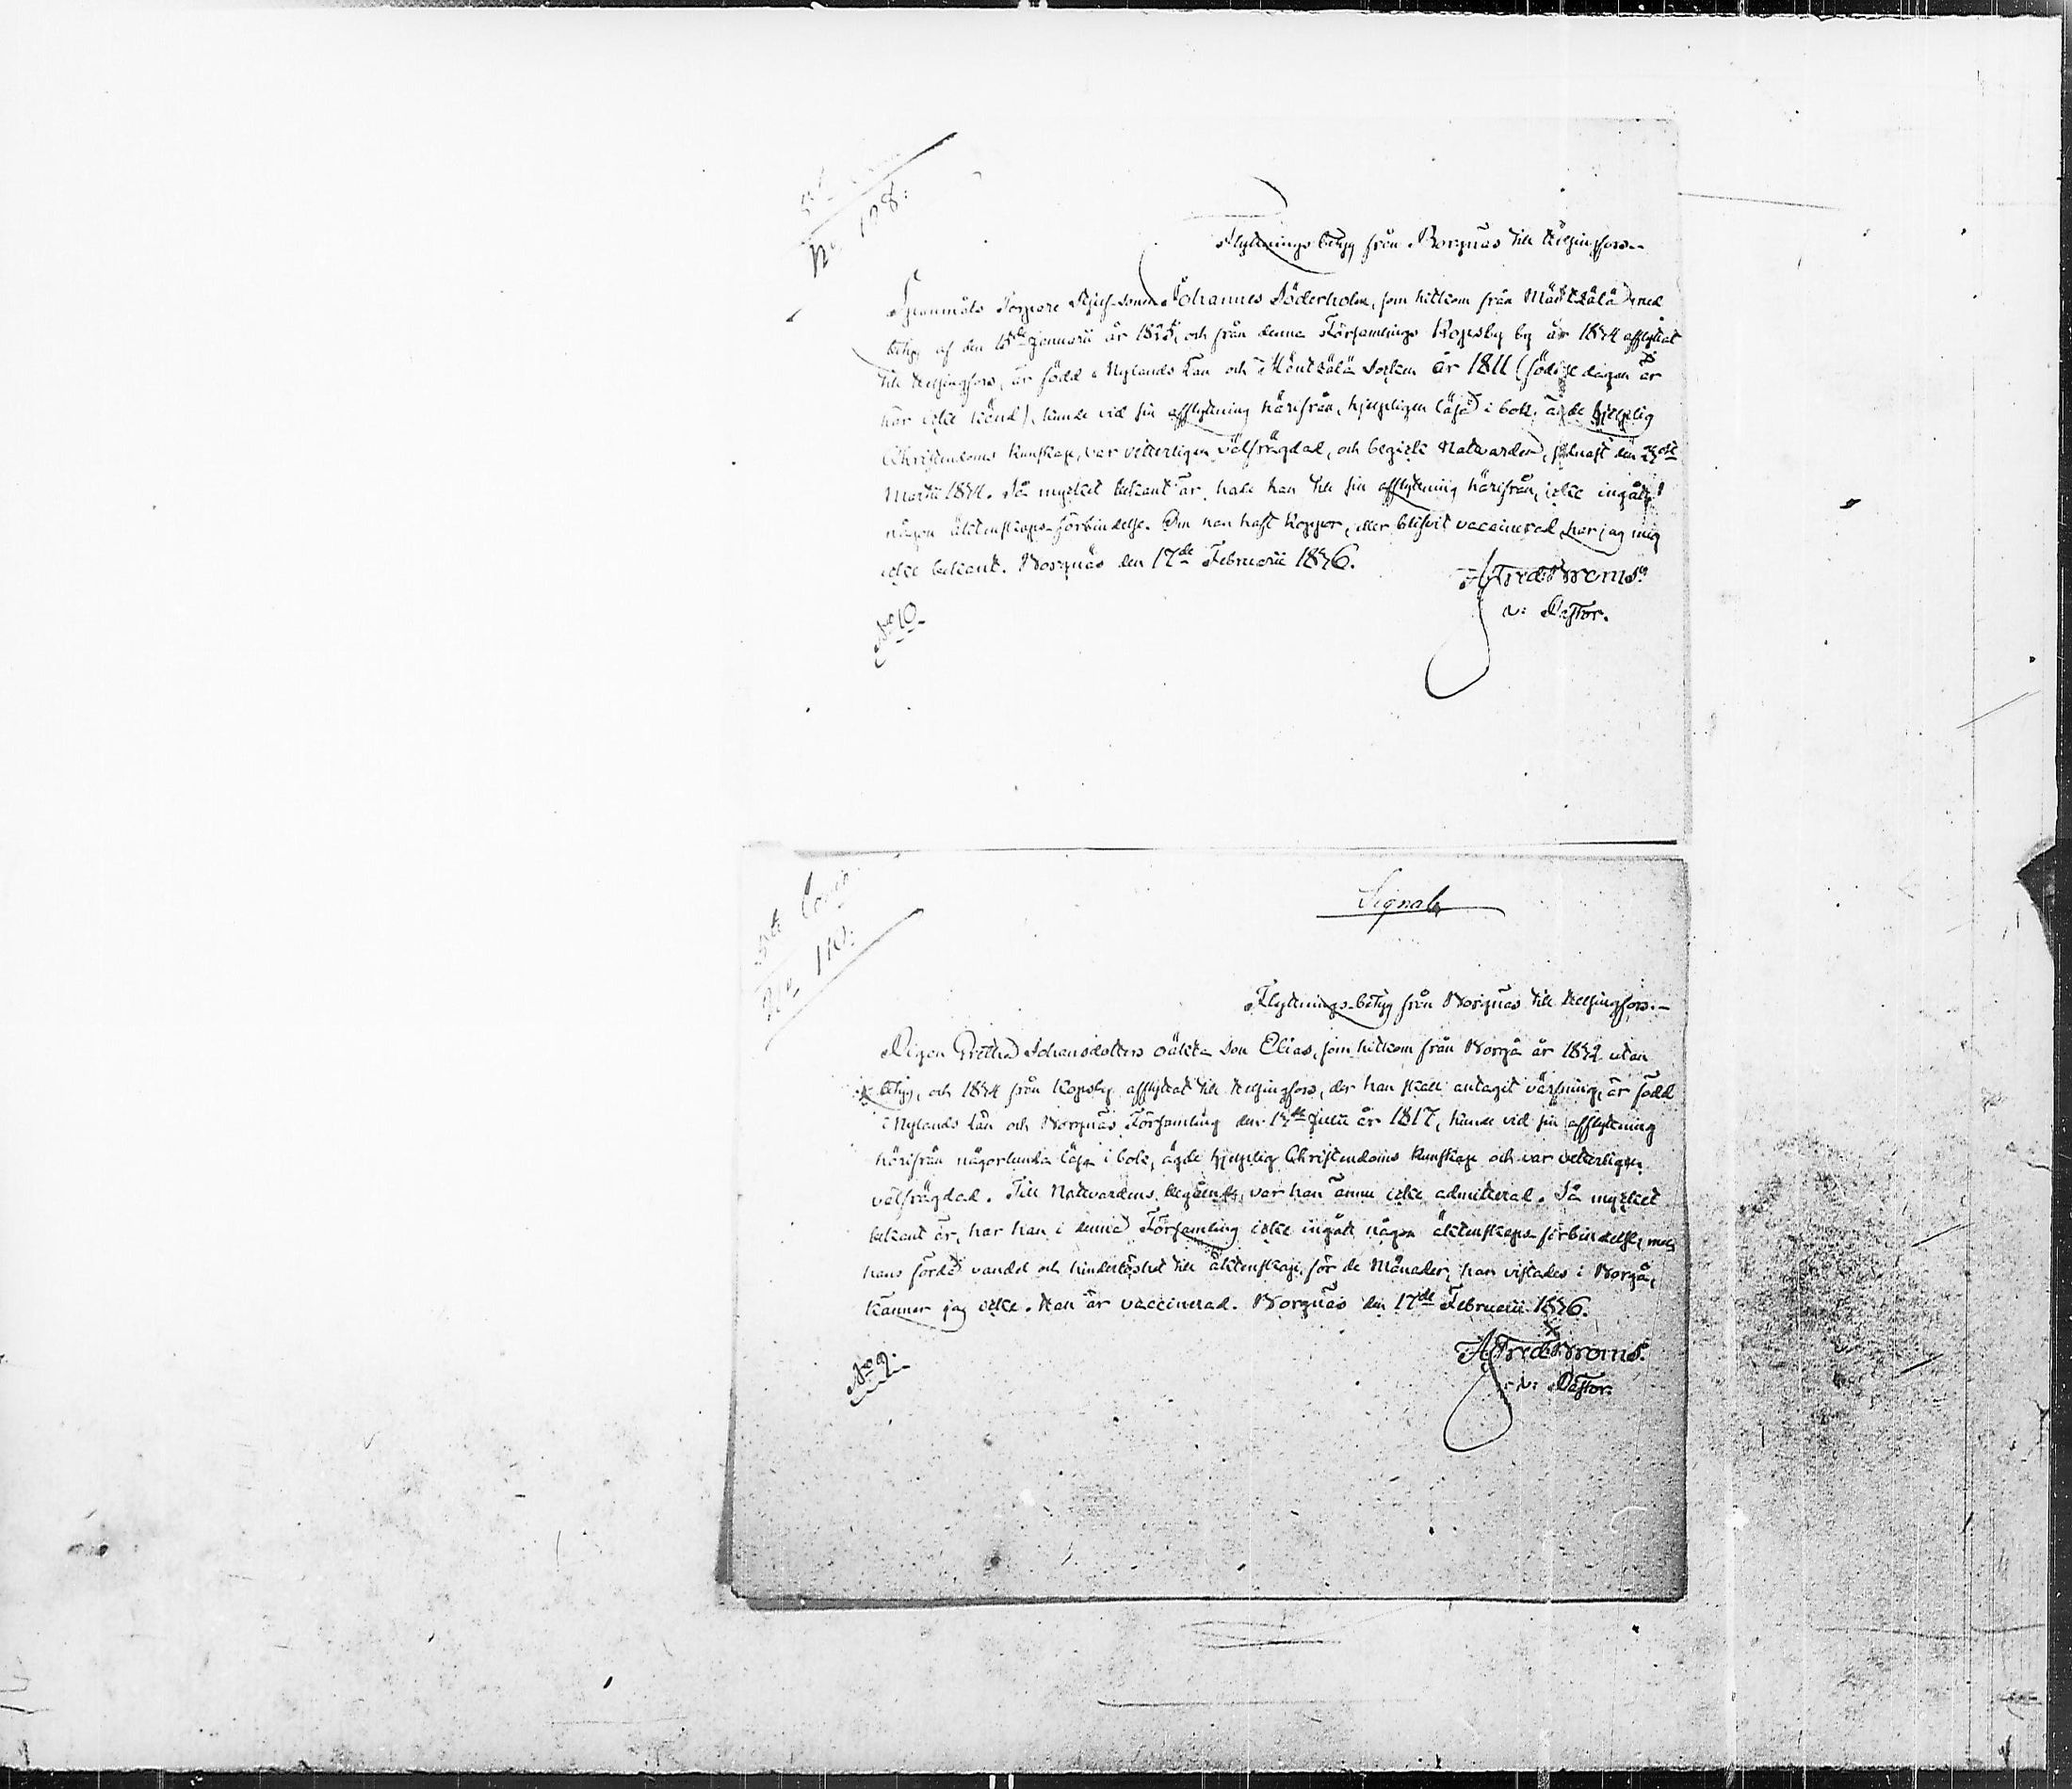 No 128:
Flyttnings betyg från Borgnäs till Helsingfors.-
Johannes Söderholm, som hitkom från Mäntzälä med
betyg af den 15de Januarii år och från denna Församlings Kopsby by år afflyttat
till Helsingfors, är född i Nylands Län och Mäntzälä Socken år 1811 (födelsedagen är
här icke känd), kunde vid sin afflyttning härifrån, hjelpligen läsa i bok, ägde hjelplig
Christendoms kunskap, var vetterligen välfrägdad, och begick Nattvarden, sednast den
Martii Så mycket bekant är, hade han till sin afflyttning härifrån, icke ingått
någon äktenskaps-förbindelse. Om han haft koppor, eller blifvit vaccinerad har jag mig
icke bekant. Borgnäs den 17de Februarii
A Fred: Broms.
v: Pastor.
No 10.
Signal
5te Comp:
No 110:
Flyttnings-betyg från Borgnäs till Helsingfors.-
Pigan Gretha Johansdotters oäkta son Elias, som hitkom från Borgå år utan
betyg, och från Kopsby afflyttat till Helsingfors, der han skall antagit värfning, är född
i Nylands Län och Borgnäs Församling den Julii år 1817, kunde vid sin afflyttning
härifrån någorlunda läsa i bok, ägde hjelplig Christendoms kunskap och var vetterligen
välfrägdad. Till Nattvardens begående, var han ännu icke admitterad. Så mycket
bekant är, har han i denna Församling icke ingått någon äktenskaps-förbindelse, men
hans förda vandel och hinderlöshet till äktenskap, för de Månader, han vistades i Borgå,
känner jag icke. Han är vaccinerad. Borgnäs den 17de Februarii
A Fred: Broms.
v: Pastor.
No 9.